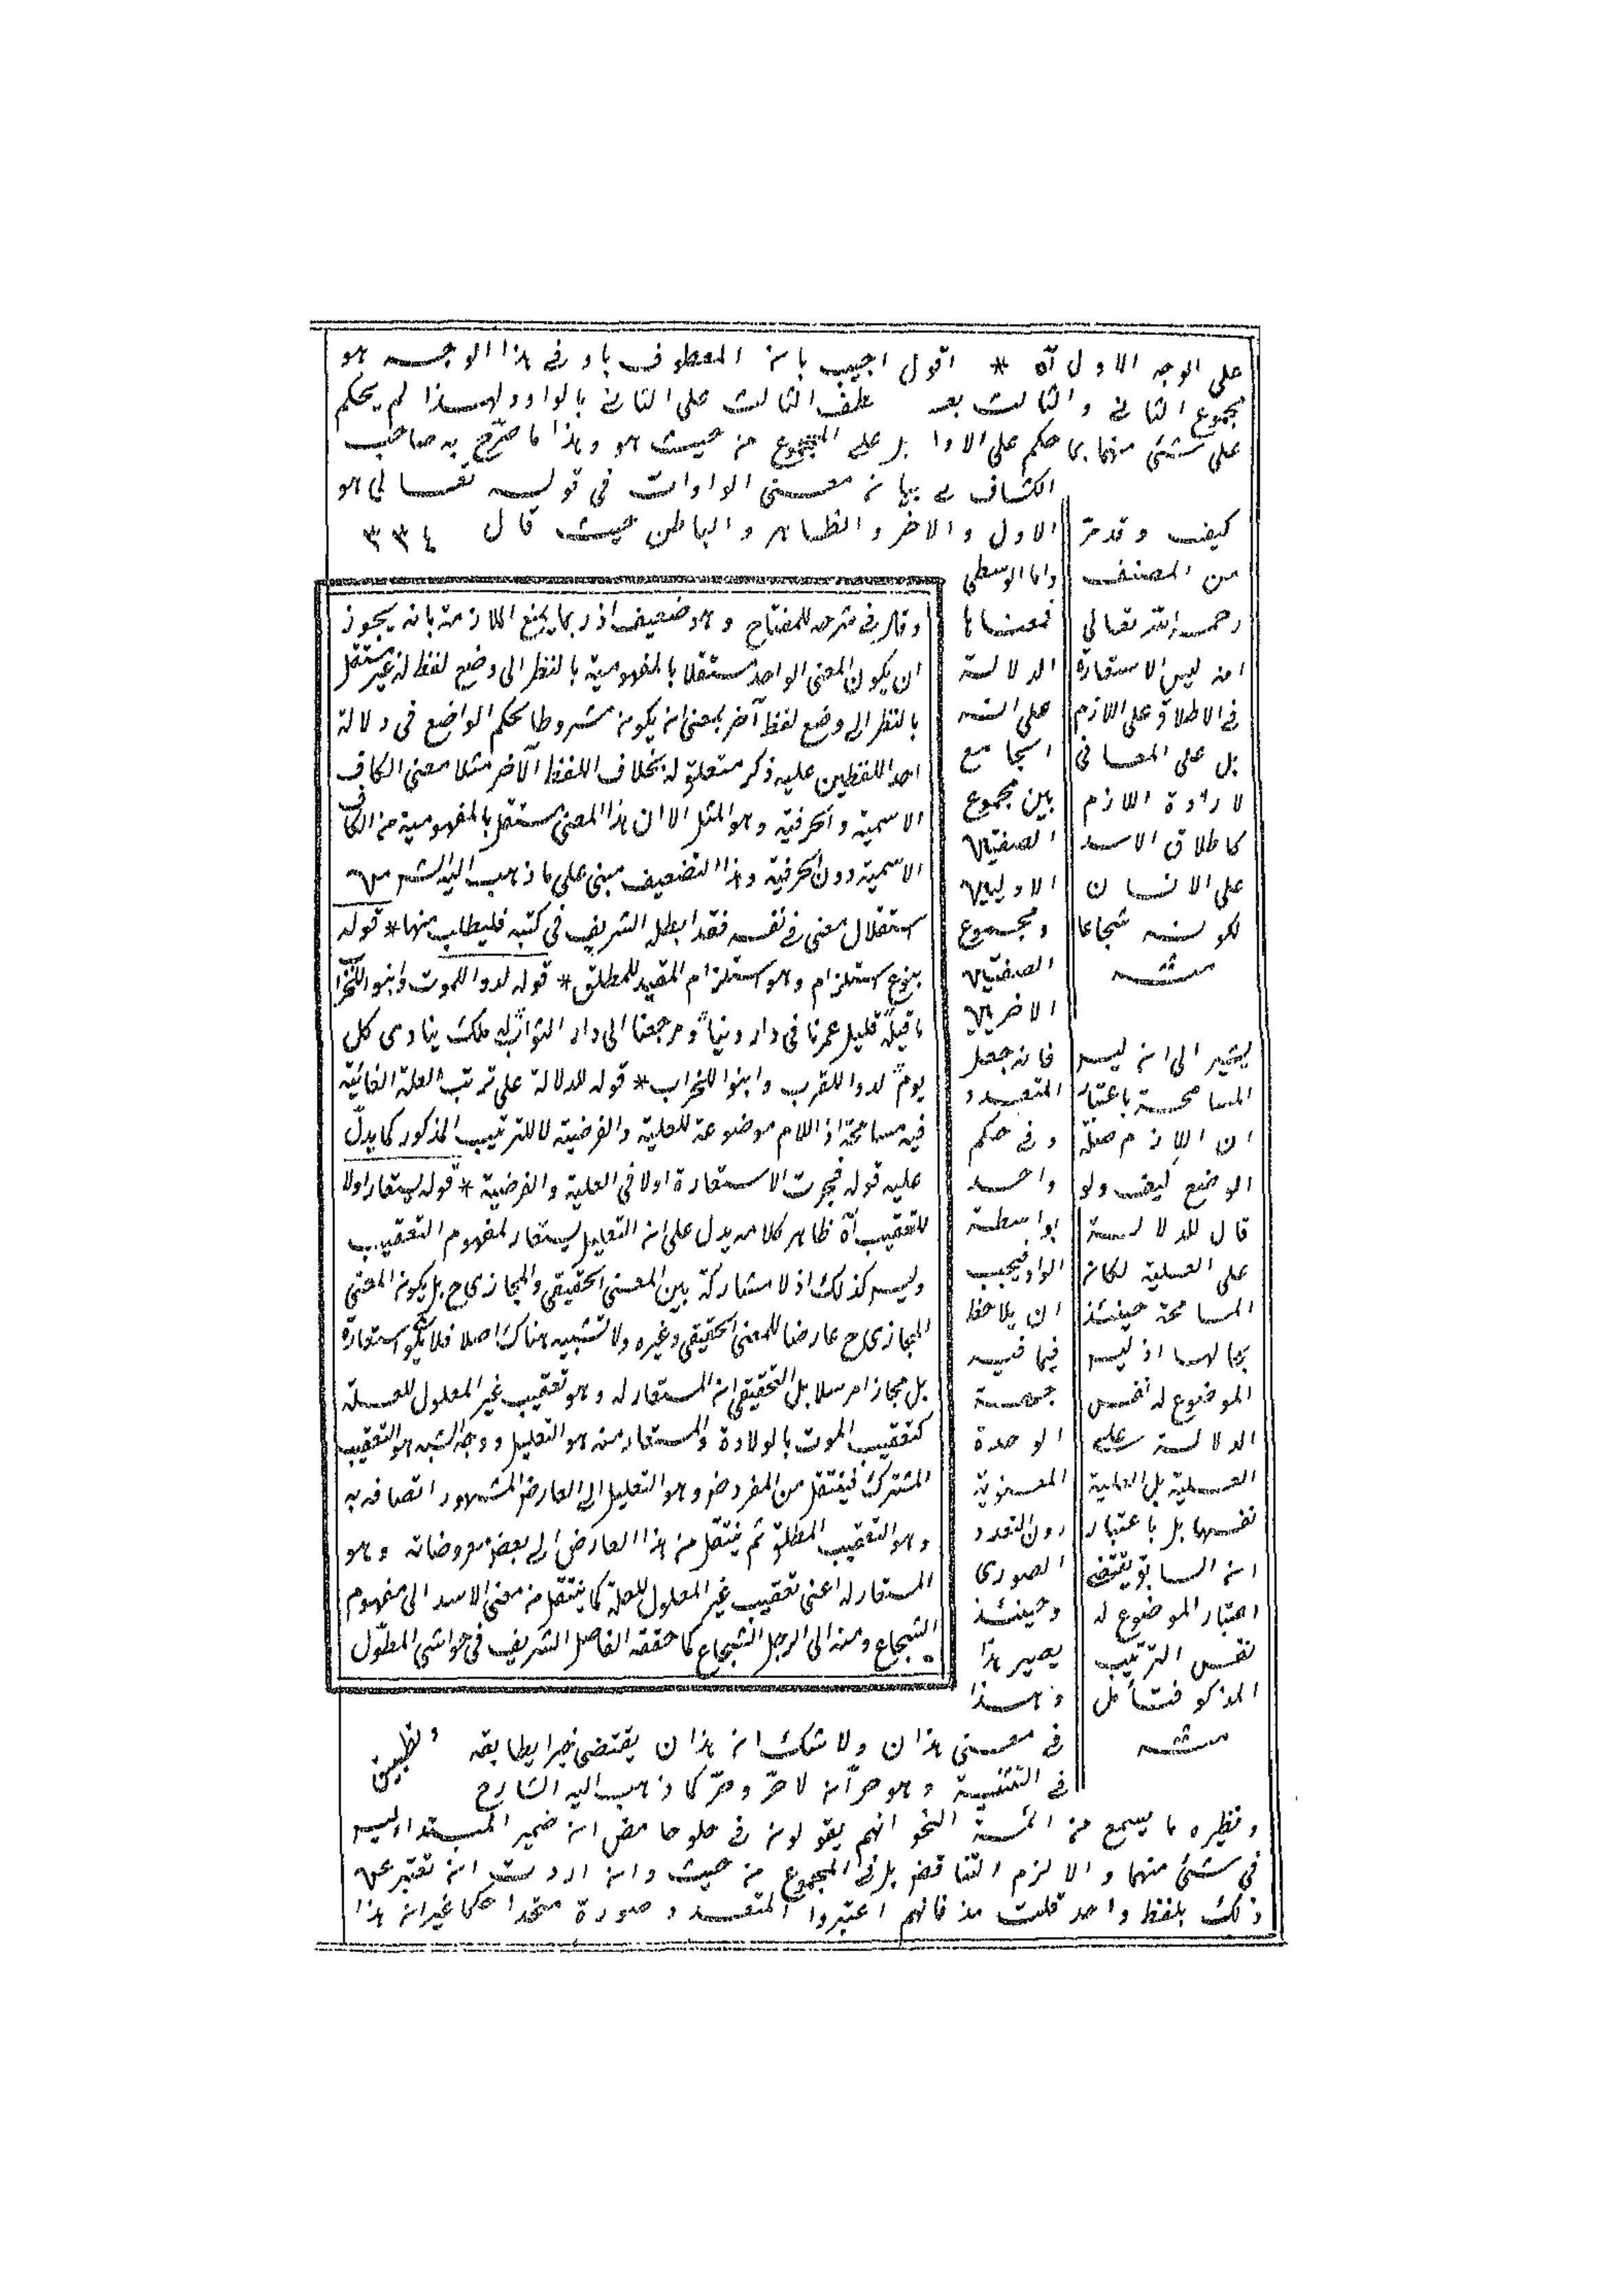 على الوجه الاول آه * اقول اجيب بان المعطوف باو في هذا الوجه هو
مجموع الثاني والثالث بعد عطف الثالث على الثاني بالواو ولهذا لم يحكم
على شئ منهما بما حكم على الاول بل على المجموع من حيث هو وهذا ما صرّح به صاحب
الكشاف في بيان معنى الواوات في قوله تعالى هو
الاول والاخر والظاهر والباطن حيث قال ٣٣٤
واما الوسطى
فمعناها
الدلالة
على انه
الجامع
بين مجموع
الصفتين
الاوليين
ومجموع
الصفتين
الاخريين
فانه جعل
المتعدد
في حكم
واحد
بواسطة
الواو فيجب
ان يلاحظ
فيما فيه
جهة
الوحدة
المعنوية
دون التعدد
الصورى
وحينئذ
يصير هذا
وهذا
في معنى هذان ولا شك ان هذان يقتضى خبرا يطابقه
في التثنية وهو حرّان لا حرّ وحرّ كما ذهب اليه الشارح
ونظيره ما يسمع من ائمة النحو انهم يقولون في حلو حامض ان ضمير المبتدا ليس
في شئ منهما والا لزم التناقض بل في المجموع من حيث وان اردت ان تعتبر عن
ذلك بلفظ واحد قلت مذ فانهم اعتبروا المتعدد صورة متحدا حكما غير ان هذا
وتطبيق
كيف وقد مرّ
من المصنف
رحمه الله تعالى
انه ليس الاستعارة
في الاطلاق على اللازم
بل على المعانى
لارادة اللازم
كاطلاق الاسد
على الانسان
لكونه شجاعا
منه
يشير الى انه ليس
المسامحة باعتبار
ان اللازم صلة
الوضع كيف ولو
قال للدلالة
على العلية لكان
المسامحة حينئذ
بحالها اذ ليس
الموضوع له نفس
الدلالة على
العلية بل العلية
نفسها بل باعتبار
ان السابق يقتضى
اعتبار الموضوع له
نفس الترتيب
المذكور فتأمل
منه
وقال في شرحه للمفتاح وهو ضعيف اذ ربما يمنع الملازمة بانه يجوز
ان يكون المعنى الواحد مستقلا بالمفهومية بالنظر الى وضع لفظ له غير مستقل
بالنظر الى وضع لفظ آخر بمعنى انه يكون مشروطا بحكم الواضع في دلالة
احد اللفظين عليه ذكر متعلق له بخلاف اللفظ الآخر مثلا معنى الكاف
الاسمية والحرفية وهو المثل الا ان هذا المعنى مستقل بالمفهومية من الكاف
الاسمية دون الحرفية وهذا التضعيف مبنى على ما ذهب اليه الشه من
استقلال معنى في نفسه فقد ابطله الشريف في كتبه فليطلب منها * قوله
بنوع استلزام وهو استلزام المقيد للمطلق * قوله لدوا للموت وابنوا للخراب
ما قبله قليل عمرنا في دار دنيا ومرجعنا الى دار التراب له ملك ينادى كل
يوم لدوا للقرب وابنوا للخراب * قوله للدلالة على ترتب العلة الغائية
فيه مسامحة اذ اللام موضوعة للعلية والغرضية لا للترتيب المذكور كما يدلّ
عليه قوله فجرت الاستعارة اولا في العلية والغرضية * قوله يستعار اولا
للتعقيب آه ظاهر كلامه يدل على ان التعليل يستعار لمفهوم التعقيب
وليس كذلك اذ لا مشاركة بين المعنى الحقيقى والمجازى ح بل يكون المعنى
المجازى ح عارضا للمعنى الحقيقى وغيره ولا تشبيه هناك اصلا فلا يكون استعارة
بل مجازا مرسلا بل التحقيق ان المستعار له وهو تعقيب غير المعلول للعلة
كتعقيب الموت بالولادة والمستعار منه هو التعليل ووجه الشبه هو التعقيب
المشترك فينتقل من المعروض وهو التعليل الى العارض المشهور اتصافه به
وهو التعقيب المطلق ثم ينتقل من هذا العارض الى بعض معروضاته وهو
المستعار له اعنى تعقيب غير المعلول للعلة كما ينتقل من معنى الاسد الى مفهوم
الشجاع ومنه الى الرجل الشجاع كما حققه الفاضل الشريف في حواشى المطوّل